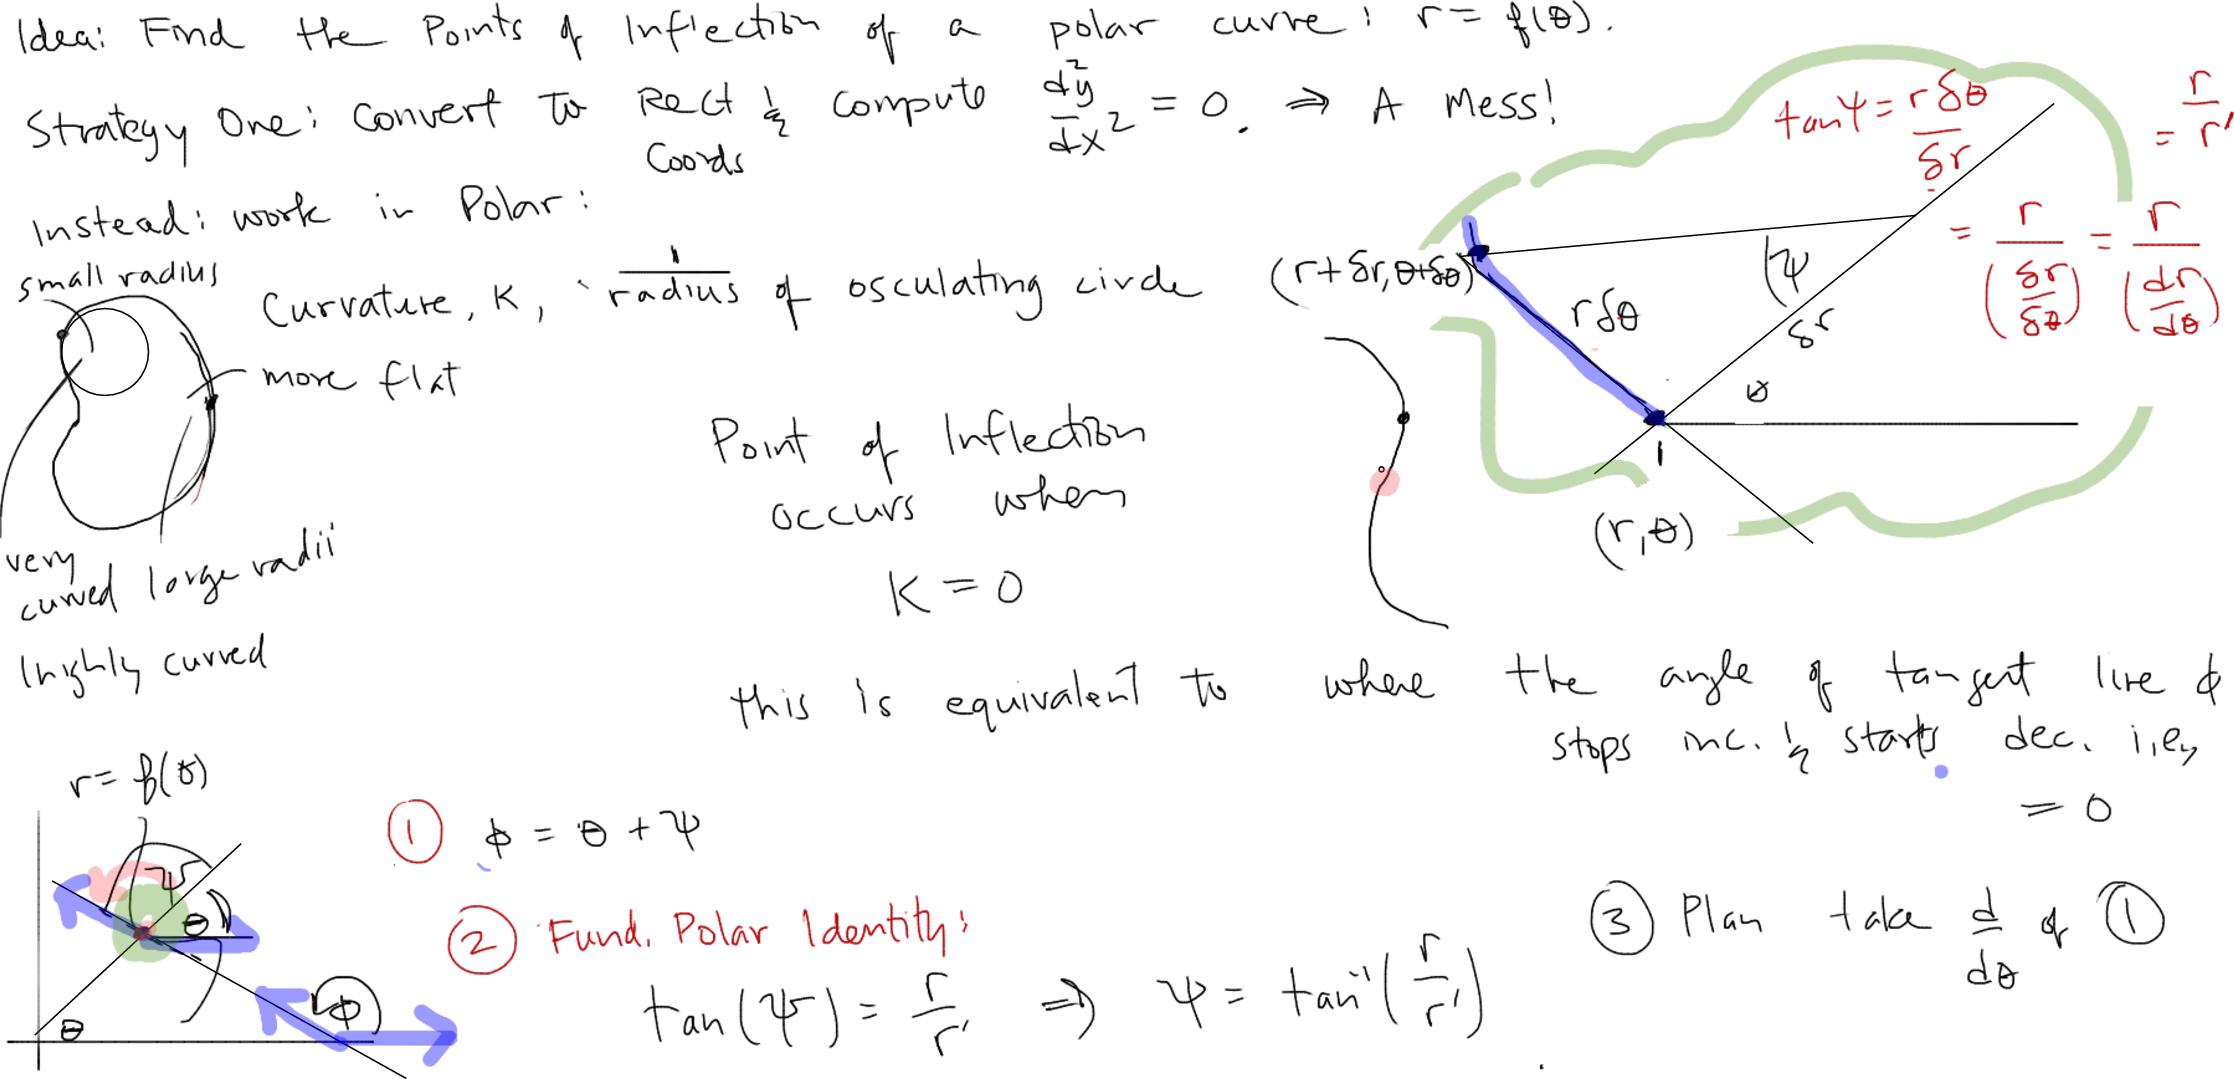 Idea: Find the Points of Inflection of a polar curve: r = f(θ).
Strategy One: Convert to Rect & compute d²y/dx² = 0. ⇒ A Mess!
Coords
Instead: work in Polar:
small radius
Curvature, K, 1/radius of osculating circle
more flat
very
curved large radii
highly curved
Point of Inflection
occurs when
K = 0
tan ψ = rδθ/δr = r/r'
= r/(δr/δθ) = r/(dr/dθ)
(r+δr, θ+δθ)
rδθ
ψ
δr
θ
(r, θ)
this is equivalent to where the angle of tangent line ϕ
stops inc. & starts dec. i.e,
= 0
r = f(θ)
ψ
θ
ϕ
θ
① ϕ = θ + ψ
② Fund. Polar Identity:
tan(ψ) = r/r' ⇒ ψ = tan⁻¹(r/r')
③ Plan take d/dθ of ①